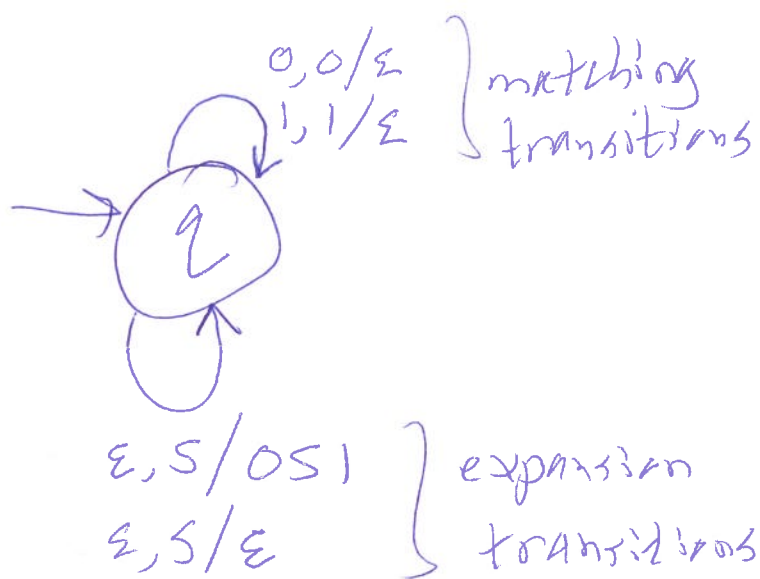 0,0/ε
1,1/ε
matching
transitions
q
ε,S/0S1
ε,S/ε
expansion
transitions